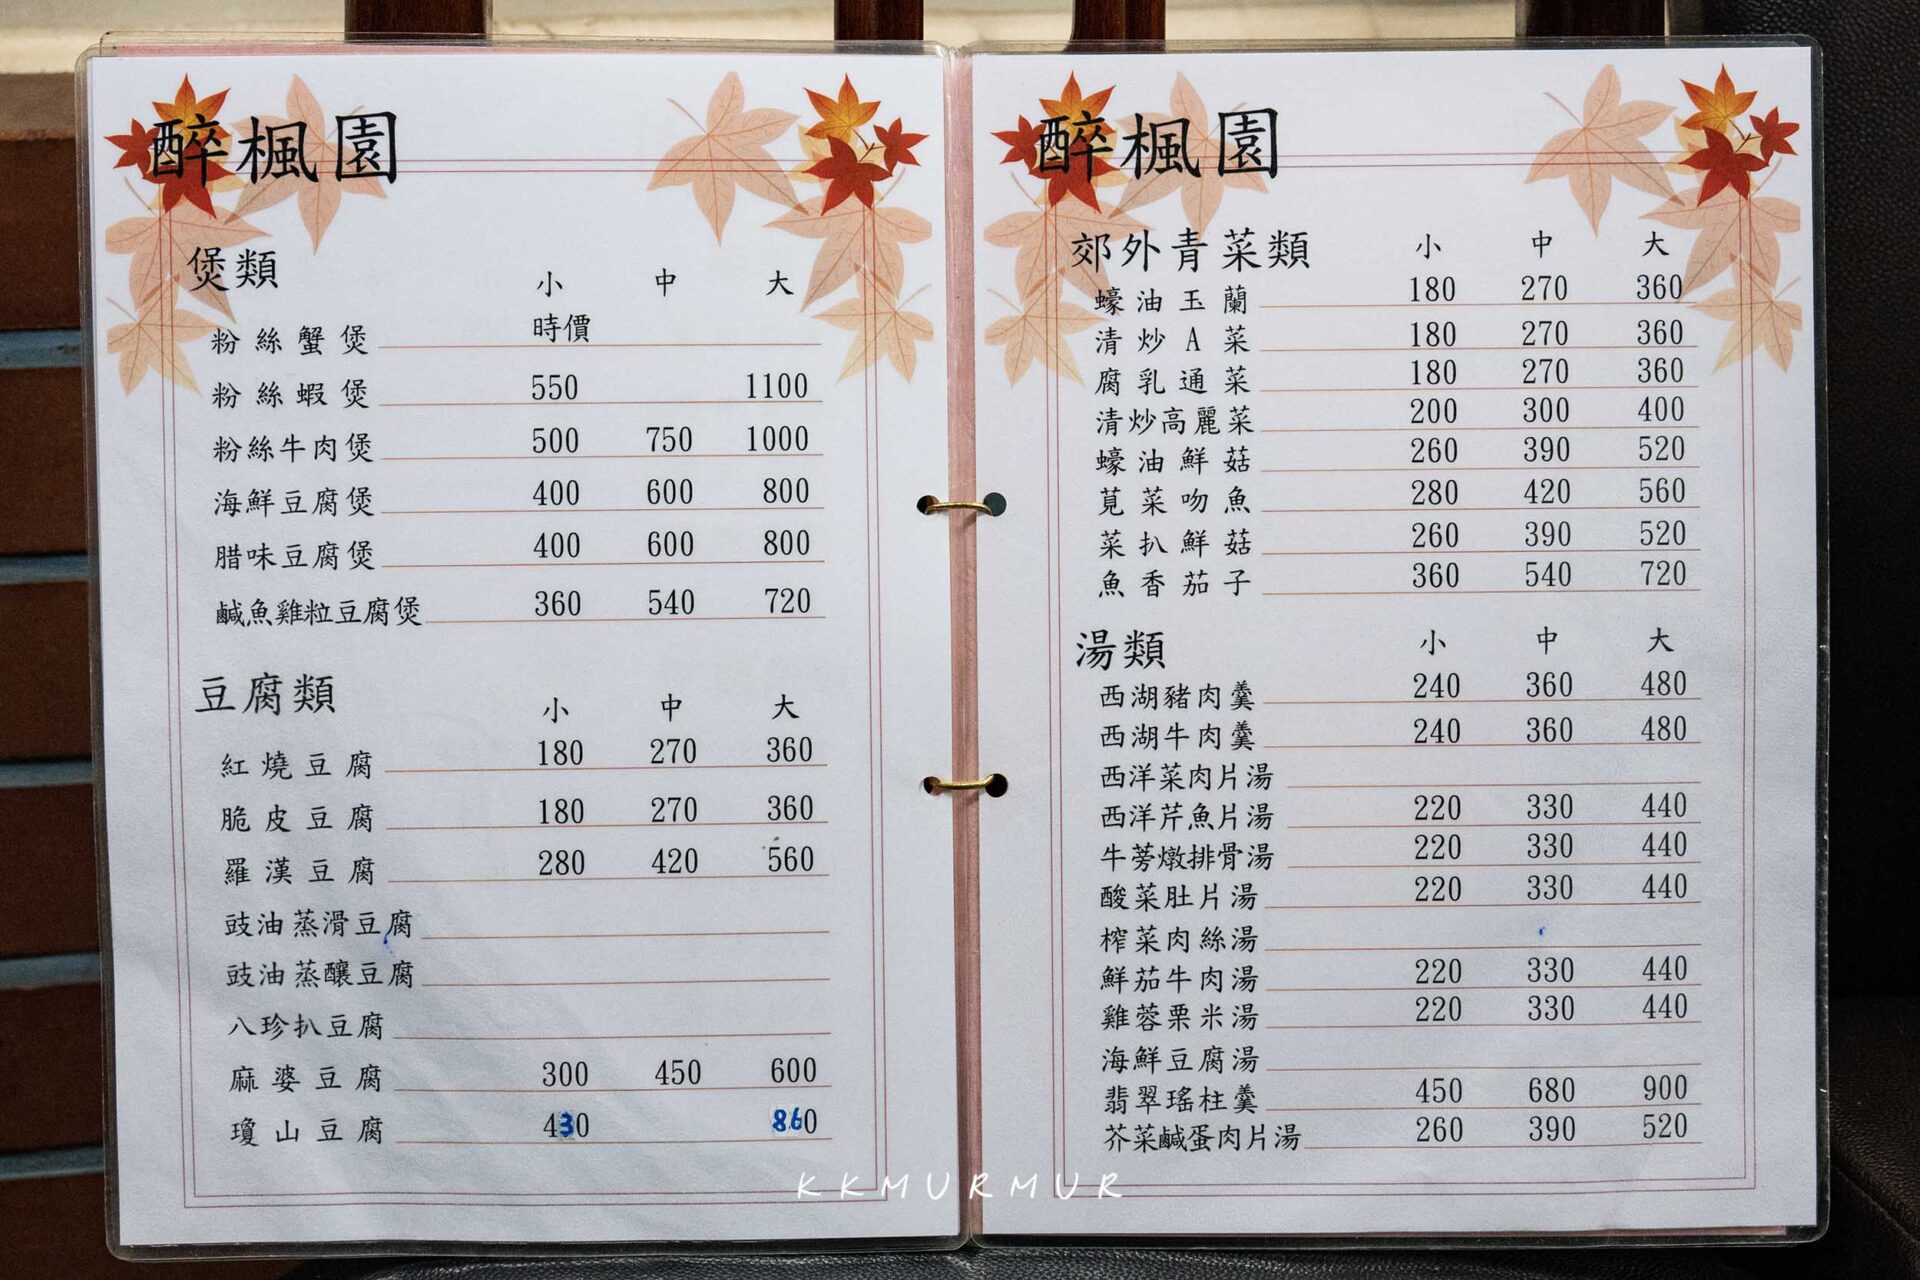 醉楓園
煲類 小 中 大
粉絲蟹煲 時價
粉絲蝦煲 550 1100
粉絲牛肉煲 500 750 1000
海鮮豆腐煲 400 600 800
腊味豆腐煲 400 600 800
鹹魚雞粒豆腐煲 360 540 720
豆腐類 小 中 大
紅燒豆腐 180 270 360
脆皮豆腐 180 270 360
羅漢豆腐 280 420 560
豉油蒸滑豆腐
豉油蒸釀豆腐
八珍扒豆腐
麻婆豆腐 300 450 600
瓊山豆腐 430 860
醉楓園
郊外青菜類 小 中 大
蠔油玉蘭 180 270 360
清炒A菜 180 270 360
腐乳通菜 180 270 360
清炒高麗菜 200 300 400
蠔油鮮菇 260 390 520
莧菜吻魚 280 420 560
菜扒鮮菇 260 390 520
魚香茄子 360 540 720
湯類 小 中 大
西湖豬肉羹 240 360 480
西湖牛肉羹 240 360 480
西洋菜肉片湯
西洋芹魚片湯 220 330 440
牛蒡燉排骨湯 220 330 440
酸菜肚片湯 220 330 440
榨菜肉絲湯
鮮茄牛肉湯 220 330 440
雞蓉粟米湯 220 330 440
海鮮豆腐湯
翡翠瑤柱羹 450 680 900
芥菜鹹蛋肉片湯 260 390 520
KKMURMUR